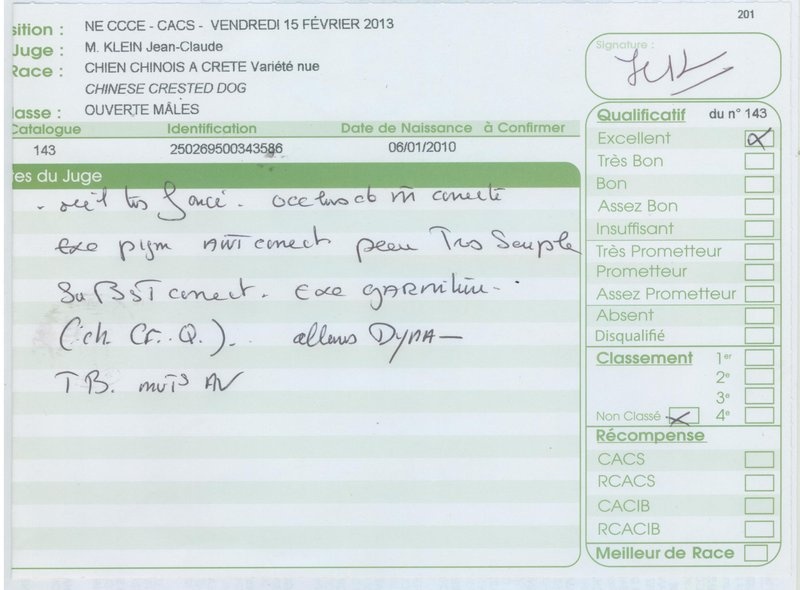 201
sition : NE CCCE - CACS - VENDREDI 15 FÉVRIER 2013
Juge : M. KLEIN Jean-Claude
Race : CHIEN CHINOIS A CRETE Variété nue
CHINESE CRESTED DOG
lasse : OUVERTE MÂLES
Catalogue Identification Date de Naissance à Confirmer
143 250269500343586 06/01/2010
es du Juge
. oeil tres foncé.
exe pigm correct peau Tres Souple
correct. exe garniture.
(ch. Cr. Q.). allures DYNA
T B. mvts AV
Signature :
Qualificatif du n° 143
Excellent
Très Bon
Bon
Assez Bon
Insuffisant
Très Prometteur
Prometteur
Assez Prometteur
Absent
Disqualifié
Classement 1er
2e
3e
Non Classé 4e
Récompense
CACS
RCACS
CACIB
RCACIB
Meilleur de Race